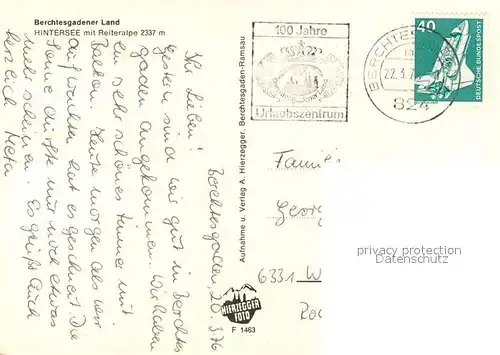 Berchtesgadener Land
HINTERSEE mit Reiteralpe 2337 m
Berchtesgaden, 20.3.76
Ihr Lieben!
Gestern sind wir gut in Berchtes
gaden angekommen. Wir haben
ein sehr schönes Zimmer mit
Balkon. Heute morgen als wir
aufwachten hat es geschneit. Die
Sonne dürfte nur noch etwas
mehr scheinen. Es grüßt Euch
herzlich Meta
Aufnahme u. Verlag A. Hierzegger, Berchtesgaden-Ramsau
HIERZEGGER
FOTO
F 1463
100 Jahre
Urlaubszentrum
BERCHTE
22.3.76
824
40
DEUTSCHE BUNDESPOST
Famili
Georg
6331 W
privacy protection
ansichtskartenversand.com